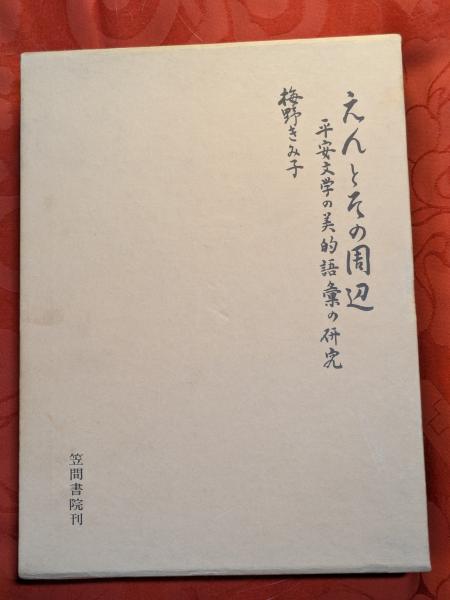 えんとその周辺
平安文学の美的語彙の研究
梅野きみ子
笠間書院刊